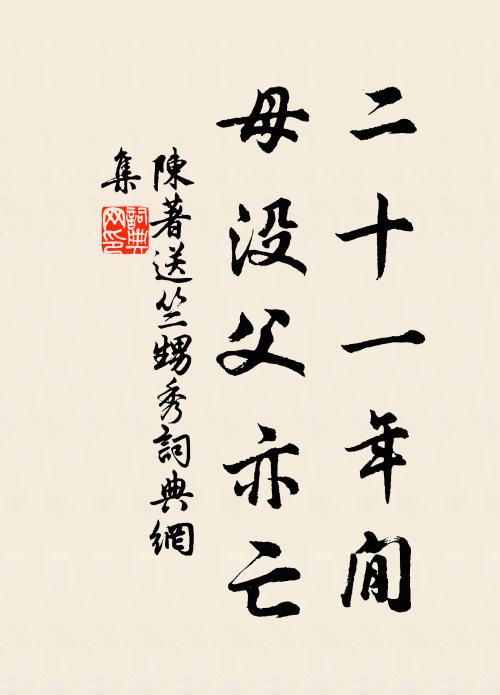 二十一年間
母没父亦亡
陳著送竺甥秀詞典網
集
詞典网印